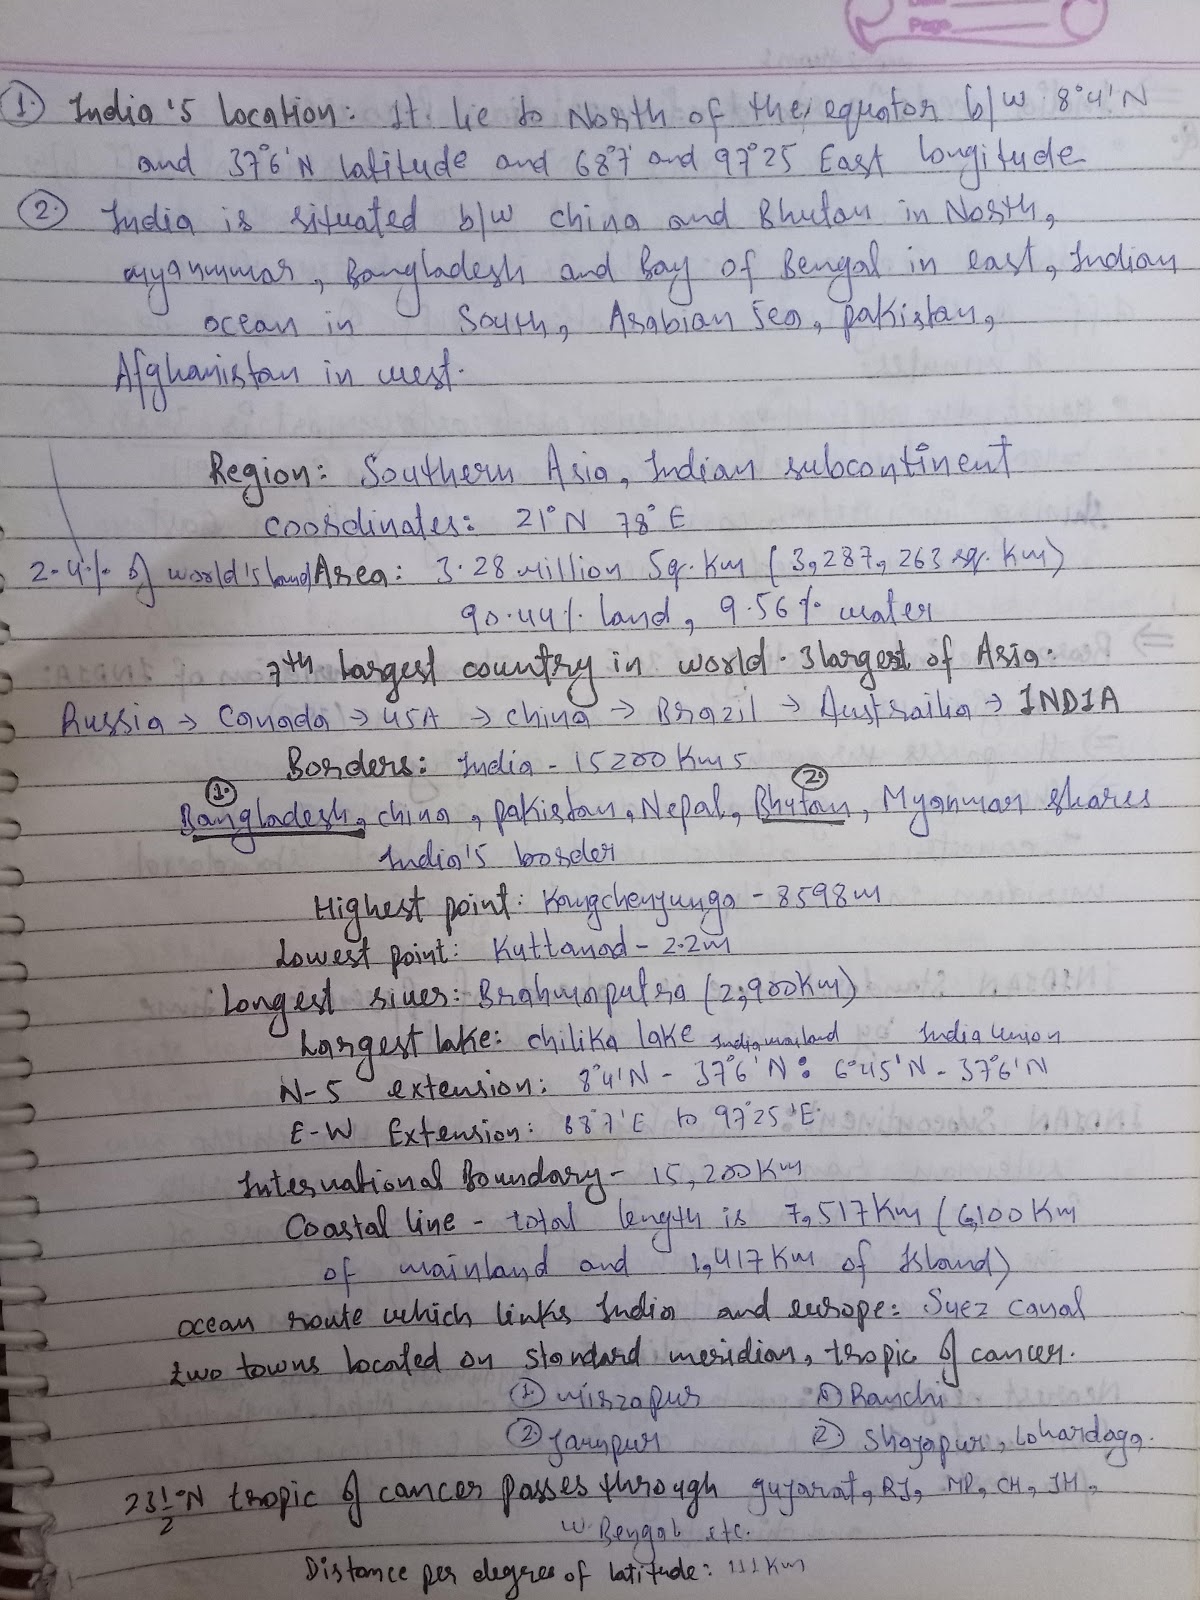 Page
1. India's location: It lie to North of the equator b/w 8°4'N
and 37°6'N latitude and 68°7' and 97°25 East longitude
2. India is situated b/w china and Bhutan in North,
myanmmar, Bangladesh and Bay of Bengal in east, Indian
ocean in South, Arabian Sea, pakistan,
Afghanistan in west.
Region: Southern Asia, Indian subcontinent
coordinates: 21°N 78°E
2.4% of world's land Area: 3.28 Million Sq. Km (3,287,263 sq. Km)
90.44% land, 9.56% water
7th largest country in world. 3 largest of Asia.
Russia → Canada → USA → China → Brazil → Austrailia → INDIA
Borders: India - 15200 Kms
1. 2.
Bangladesh, china, pakistan, Nepal, Bhutan, Myanmar shares
India's border
Highest point: Kangchenjunga - 8598m
Lowest point: Kuttanad - 2.2m
Longest river: Brahmaputra (2,900Km)
Largest lake: chilika lake India mainland India Union
N-S extension: 8°4'N - 37°6'N : 6°45'N - 37°6'N
E-W Extension: 68°7'E to 97°25'E.
International Boundary - 15,200Km
Coastal line - total length is 7,517Km (6,100 Km
of mainland and 1,417Km of Island)
ocean route which links India and europe: Suez canal
two towns located on standard meridian, tropic of cancer.
1 mirzapur 1 Ranchi
2 Jaunpur 2 Shajapur, Lohardaga.
23 1/2 °N tropic of cancer passes through gujarat, RJ, MP, CH, JH,
W. Bengal etc.
Distance per degree of latitude: 111Km